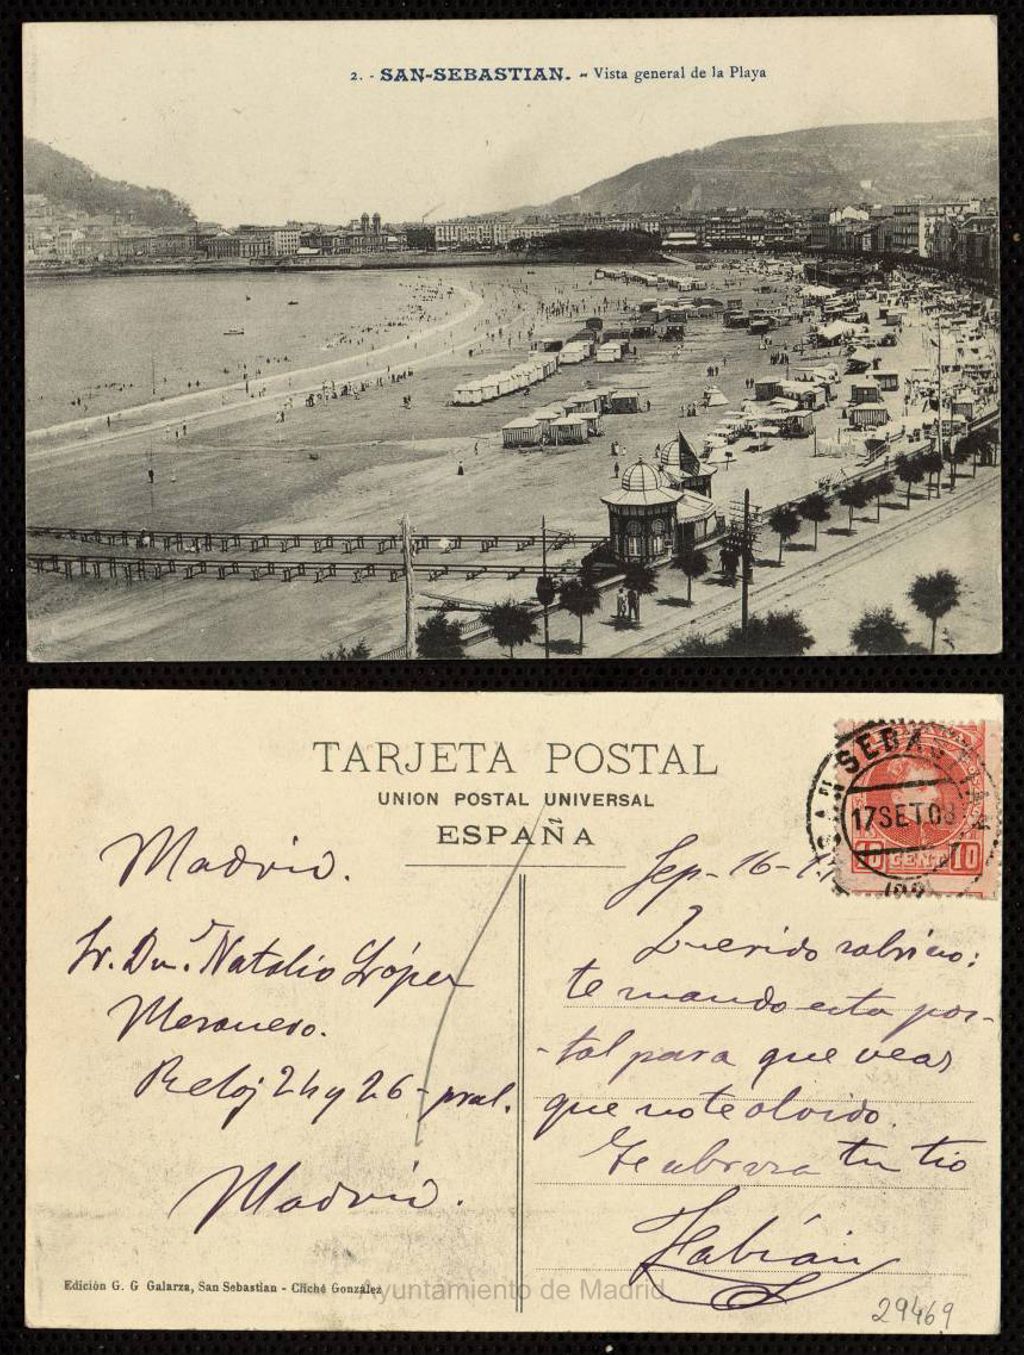 2. - SAN-SEBASTIAN. - Vista general de la Playa
TARJETA POSTAL
UNION POSTAL UNIVERSAL
ESPAÑA
SEBAS
17 SET.08
10 CENT 10
Madrid.
Sr. Dn. Natalio López
Meranero.
Reloj 24 y 26 - pral.
Madrid.
Sep - 16 -
Querido sobrino:
te mando esta pos-
-tal para que veas
que no te olvido.
Te abraza tu tio
Fabián
Edición G. G Galarza, San Sebastian - Cliché González
Ayuntamiento de Madrid
29469